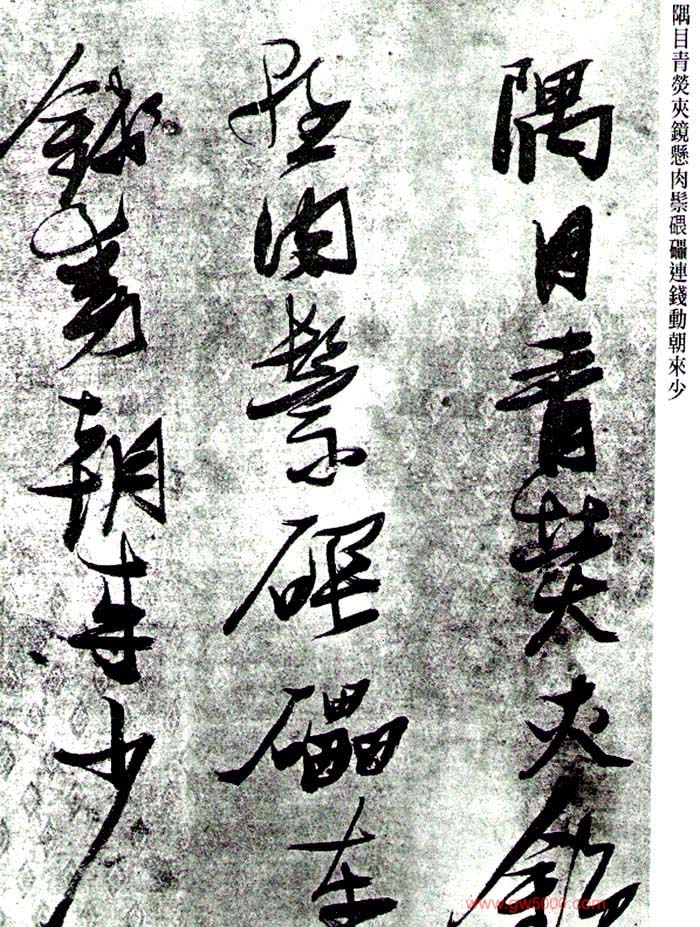 隅目青熒夾鏡懸肉鬃碨礧連錢動朝來少
隅目青熒夾鏡
懸肉鬃碨礧連
錢動朝來少
www.gw5000.com